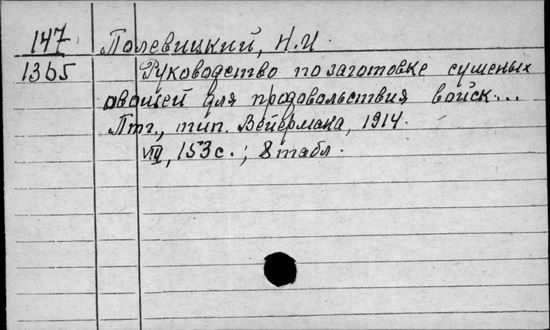 147 Полевицкий, Н.И
1365 Руководство по заготовке сушеных
овощей для продовольствия войск...
Птг., тип. Вейермана, 1914.
VIII, 153 с.; 8 табл.